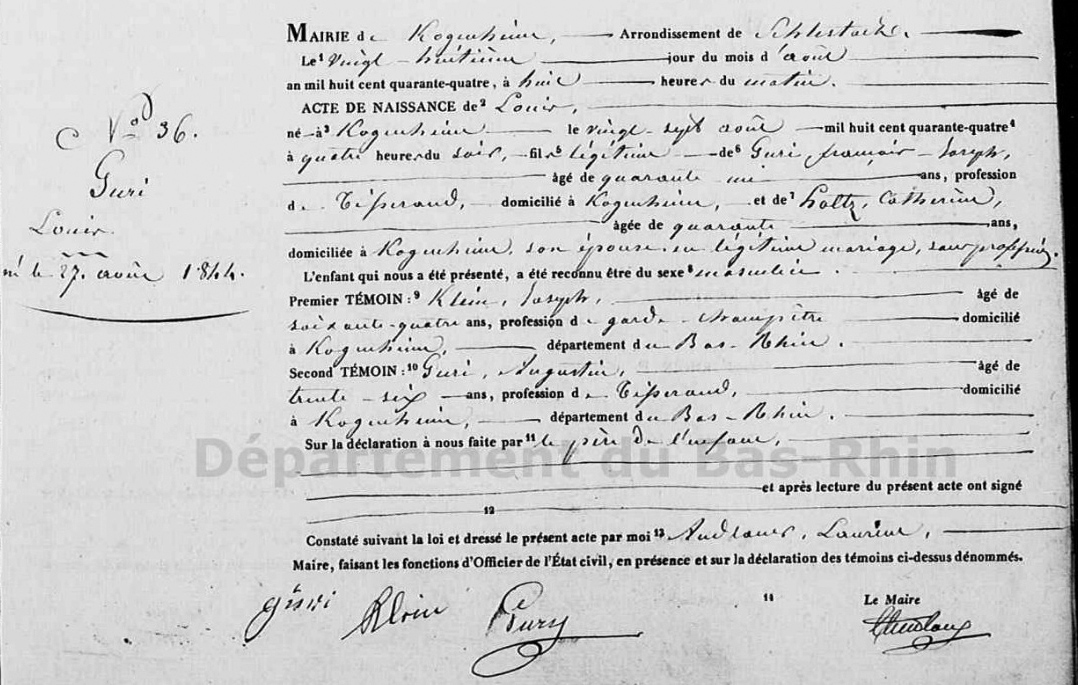 MAIRIE de Kogenheim, Arrondissement de Schlestadt.
Le¹ vingt-huitième jour du mois d'août
an mil huit cent quarante-quatre, à huit heures du matin.
ACTE DE NAISSANCE de² Louis,
né à³ Kogenheim le vingt-sept août mil huit cent quarante-quatre⁴
à quatre heures du soir, fils⁵ légitime de⁶ Guri françois-Joseph,
âgé de quarante un ans, profession
de Tisserand, domicilié à Kogenheim, et de⁷ hottz, Catherine,
âgée de quarante ans,
domiciliée à Kogenheim, son épouse en légitime mariage, sans profession.
L'enfant qui nous a été présenté, a été reconnu être du sexe⁸ masculin.
Premier TÉMOIN :⁹ Klein, Joseph, âgé de
soixante-quatre ans, profession de garde-champêtre domicilié
à Kogenheim, département du Bas-Rhin.
Second TÉMOIN :¹⁰ Guri, Augustin, âgé de
trente-six ans, profession de Tisserand, domicilié
à Kogenheim, département du Bas-Rhin.
Sur la déclaration à nous faite par¹¹ le père de l'enfant,
et après lecture du présent acte ont signé
12
Constaté suivant la loi et dressé le présent acte par moi¹³ Andlauer, Laurent,
Maire, faisant les fonctions d'Officier de l'État civil, en présence et sur la déclaration des témoins ci-dessus dénommés.
14 Le Maire
Klein
Andlauer
N° 36.
Guri
Louis
né le 27. août 1844.
Département du Bas-Rhin